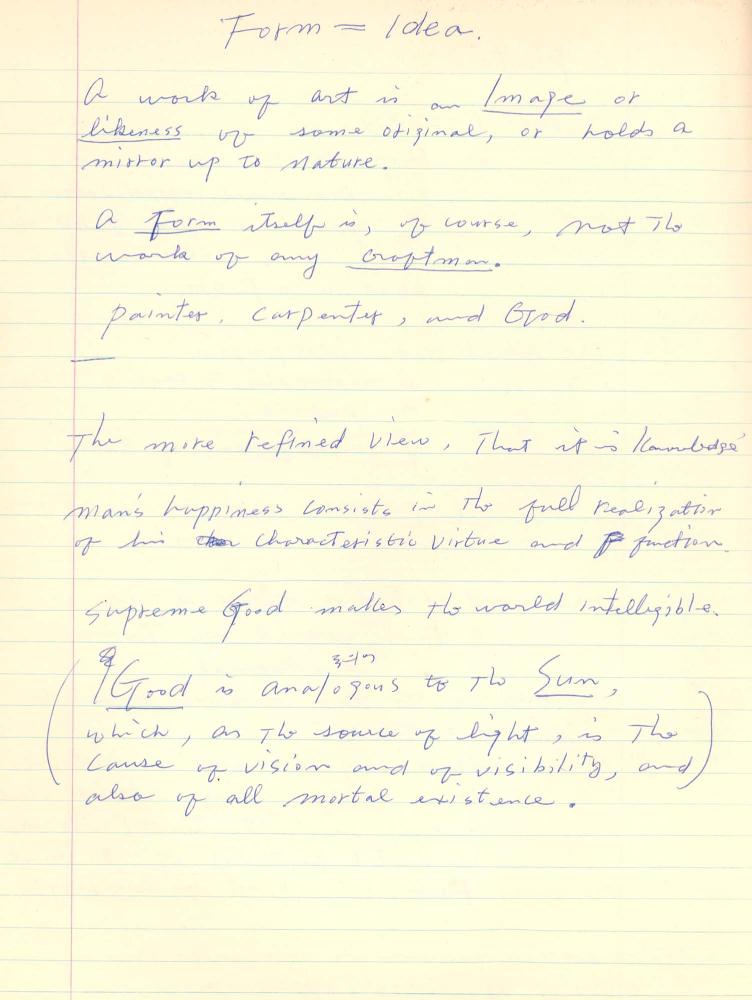 Form = Idea.
A work of art is an Image or
likeness of some original, or holds a
mirror up to nature.
A Form itself is, of course, not the
work of any craftman.
painter, carpenter, and God.
The more refined view, that it is Knowledge
man's happiness consists in the full realization
of his characteristic virtue and function.
Supreme Good makes the world intelligible.
(Good is analogous to the Sun,
which, as the source of light, is the
cause of vision and of visibility, and)
also of all mortal existence.